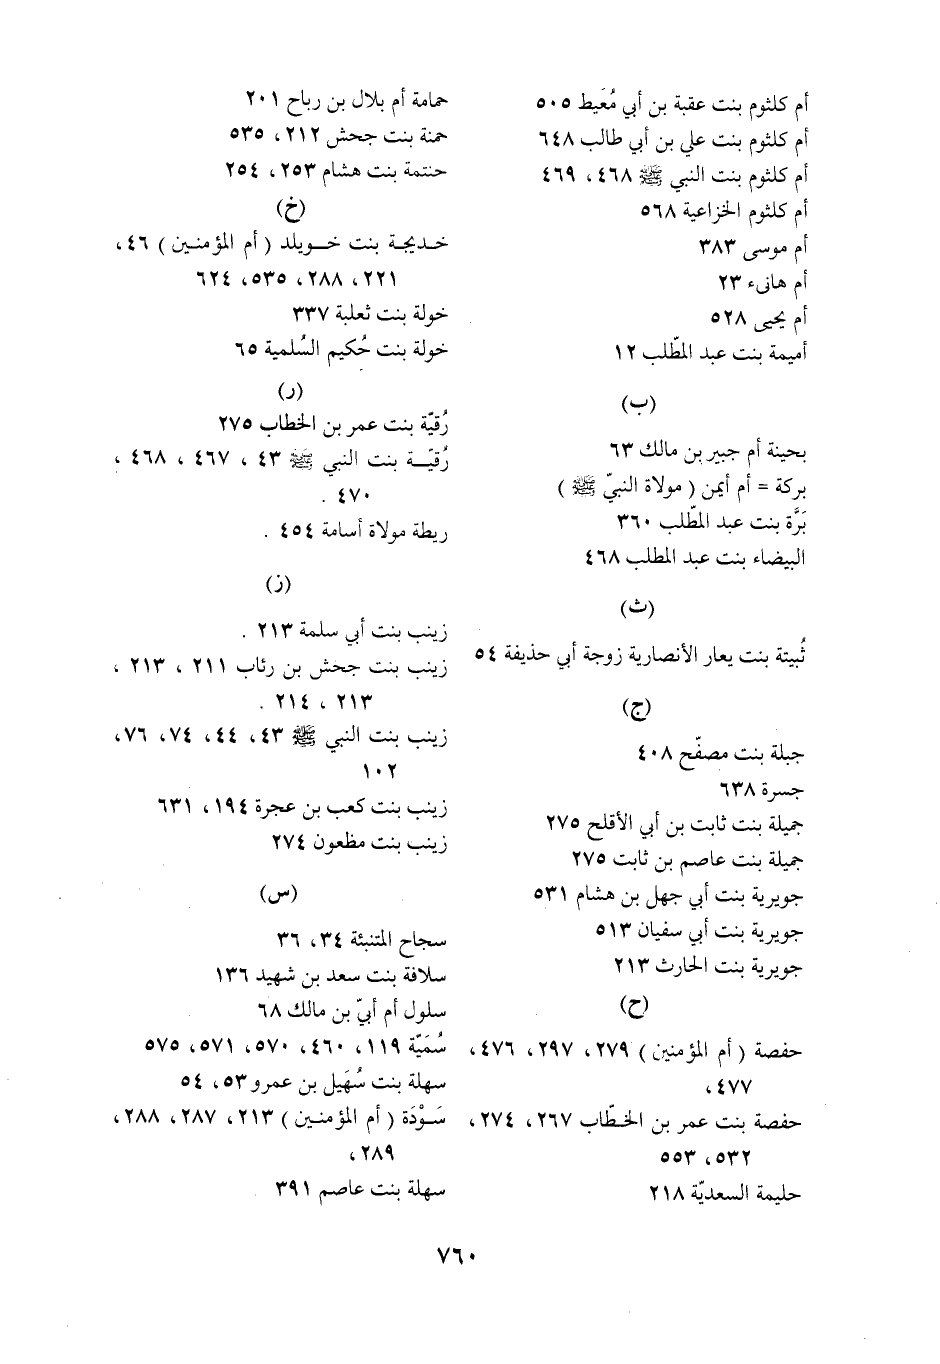 أم كلثوم بنت عقبة بن أبي مُعَيط ٥٠٥
أم كلثوم بنت علي بن أبي طالب ٦٤٨
أم كلثوم بنت النبي ﷺ ٤٦٨، ٤٦٩
أم كلثوم الخزاعية ٥٦٨
أم موسى ٣٨٣
أم هانىء ٢٣
أم يحيى ٥٢٨
أميمة بنت عبد المطّلب ١٢
(ب)
بحينة أم جبير بن مالك ٦٣
بركة = أم أيمن ( مولاة النبيّ ﷺ )
بَرَّة بنت عبد المطّلب ٣٦٠
البيضاء بنت عبد المطلب ٤٦٨
(ث)
ثُبيتة بنت يعار الأنصارية زوجة أبي حذيفة ٥٤
(ج)
جبلة بنت مصفّح ٤٠٨
جسرة ٦٣٨
جميلة بنت ثابت بن أبي الأقلح ٢٧٥
جميلة بنت عاصم بن ثابت ٢٧٥
جويرية بنت أبي جهل بن هشام ٥٣١
جويرية بنت أبي سفيان ٥١٣
جويرية بنت الحارث ٢١٣
(ح)
حفصة ( أم المؤمنين ) ٢٧٩، ٢٩٧، ٤٧٦،
٤٧٧،
حفصة بنت عمر بن الخطّاب ٢٦٧، ٢٧٤،
٥٣٢، ٥٥٣
حليمة السعديّة ٢١٨
حمامة أم بلال بن رباح ٢٠١
حمنة بنت جحش ٢١٢، ٥٣٥
حنتمة بنت هشام ٢٥٣، ٢٥٤
(خ)
خديجة بنت خويلد ( أم المؤمنين ) ٤٦،
٢٢١، ٢٨٨، ٥٣٥، ٦٢٤
خولة بنت ثعلبة ٣٣٧
خولة بنت حُكيم السُلمية ٦٥
(ر)
رُقيّة بنت عمر بن الخطاب ٢٧٥
رُقيّة بنت النبي ﷺ ٤٣ ، ٤٦٧ ، ٤٦٨ ،
٤٧٠ .
ريطة مولاة أسامة ٤٥٤ .
(ز)
زينب بنت أبي سلمة ٢١٣ .
زينب بنت جحش بن رئاب ٢١١ ، ٢١٣ ،
٢١٣ ، ٢١٤ .
زينب بنت النبي ﷺ ٤٣، ٤٤، ٧٤، ٧٦،
١٠٢
زينب بنت كعب بن عجرة ١٩٤، ٦٣١
زينب بنت مظعون ٢٧٤
(س)
سجاح المتنبئة ٣٤، ٣٦
سلافة بنت سعد بن شهيد ١٣٦
سلول أم أبيّ بن مالك ٦٨
سُمَيّة ١١٩، ٤٦٠، ٥٧٠، ٥٧١، ٥٧٥
سهلة بنت سُهَيل بن عمرو ٥٣، ٥٤
سَوْدَة ( أم المؤمنين ) ٢١٣، ٢٨٧، ٢٨٨،
٢٨٩،
سهلة بنت عاصم ٣٩١
٧٦٠